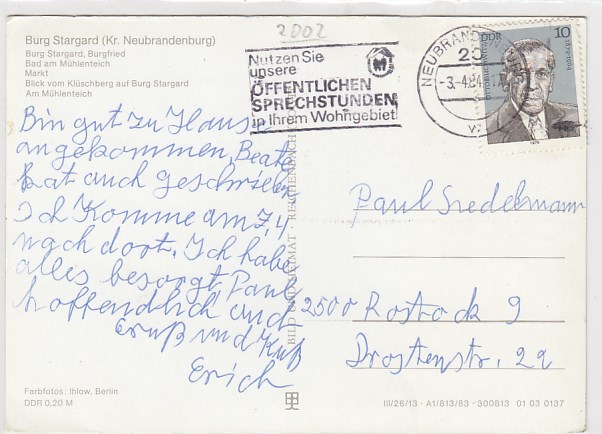 2002
Burg Stargard (Kr. Neubrandenburg)
Burg Stargard, Burgfried
Bad am Mühlenteich
Markt
Blick vom Klüschberg auf Burg Stargard
Am Mühlenteich
Nutzen Sie
unsere
ÖFFENTLICHEN
SPRECHSTUNDEN
in Ihrem Wohngebiet!
DDR
10
Bin gut zu Hause
angekommen, Beate
hat auch geschrieben
Ich Komme am 7.4
nach dort. Ich habe
alles besorgt. Paul
hoffendlich auch
Gruß und Kuß
Erich
BILD UND HEIMAT · REICHENBACH
Paul
2500 Rostock 9
2a
Farbfotos: Ihlow, Berlin
DDR 0,20 M
III/26/13 · A1/813/83 · 300813 01 03 0137